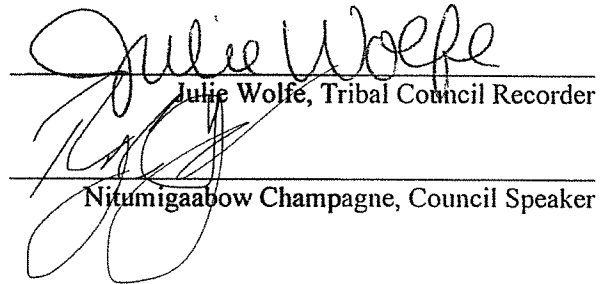 Julie Wolfe
Julie Wolfe, Tribal Council Recorder
Nitumigaabow Champagne, Council Speaker